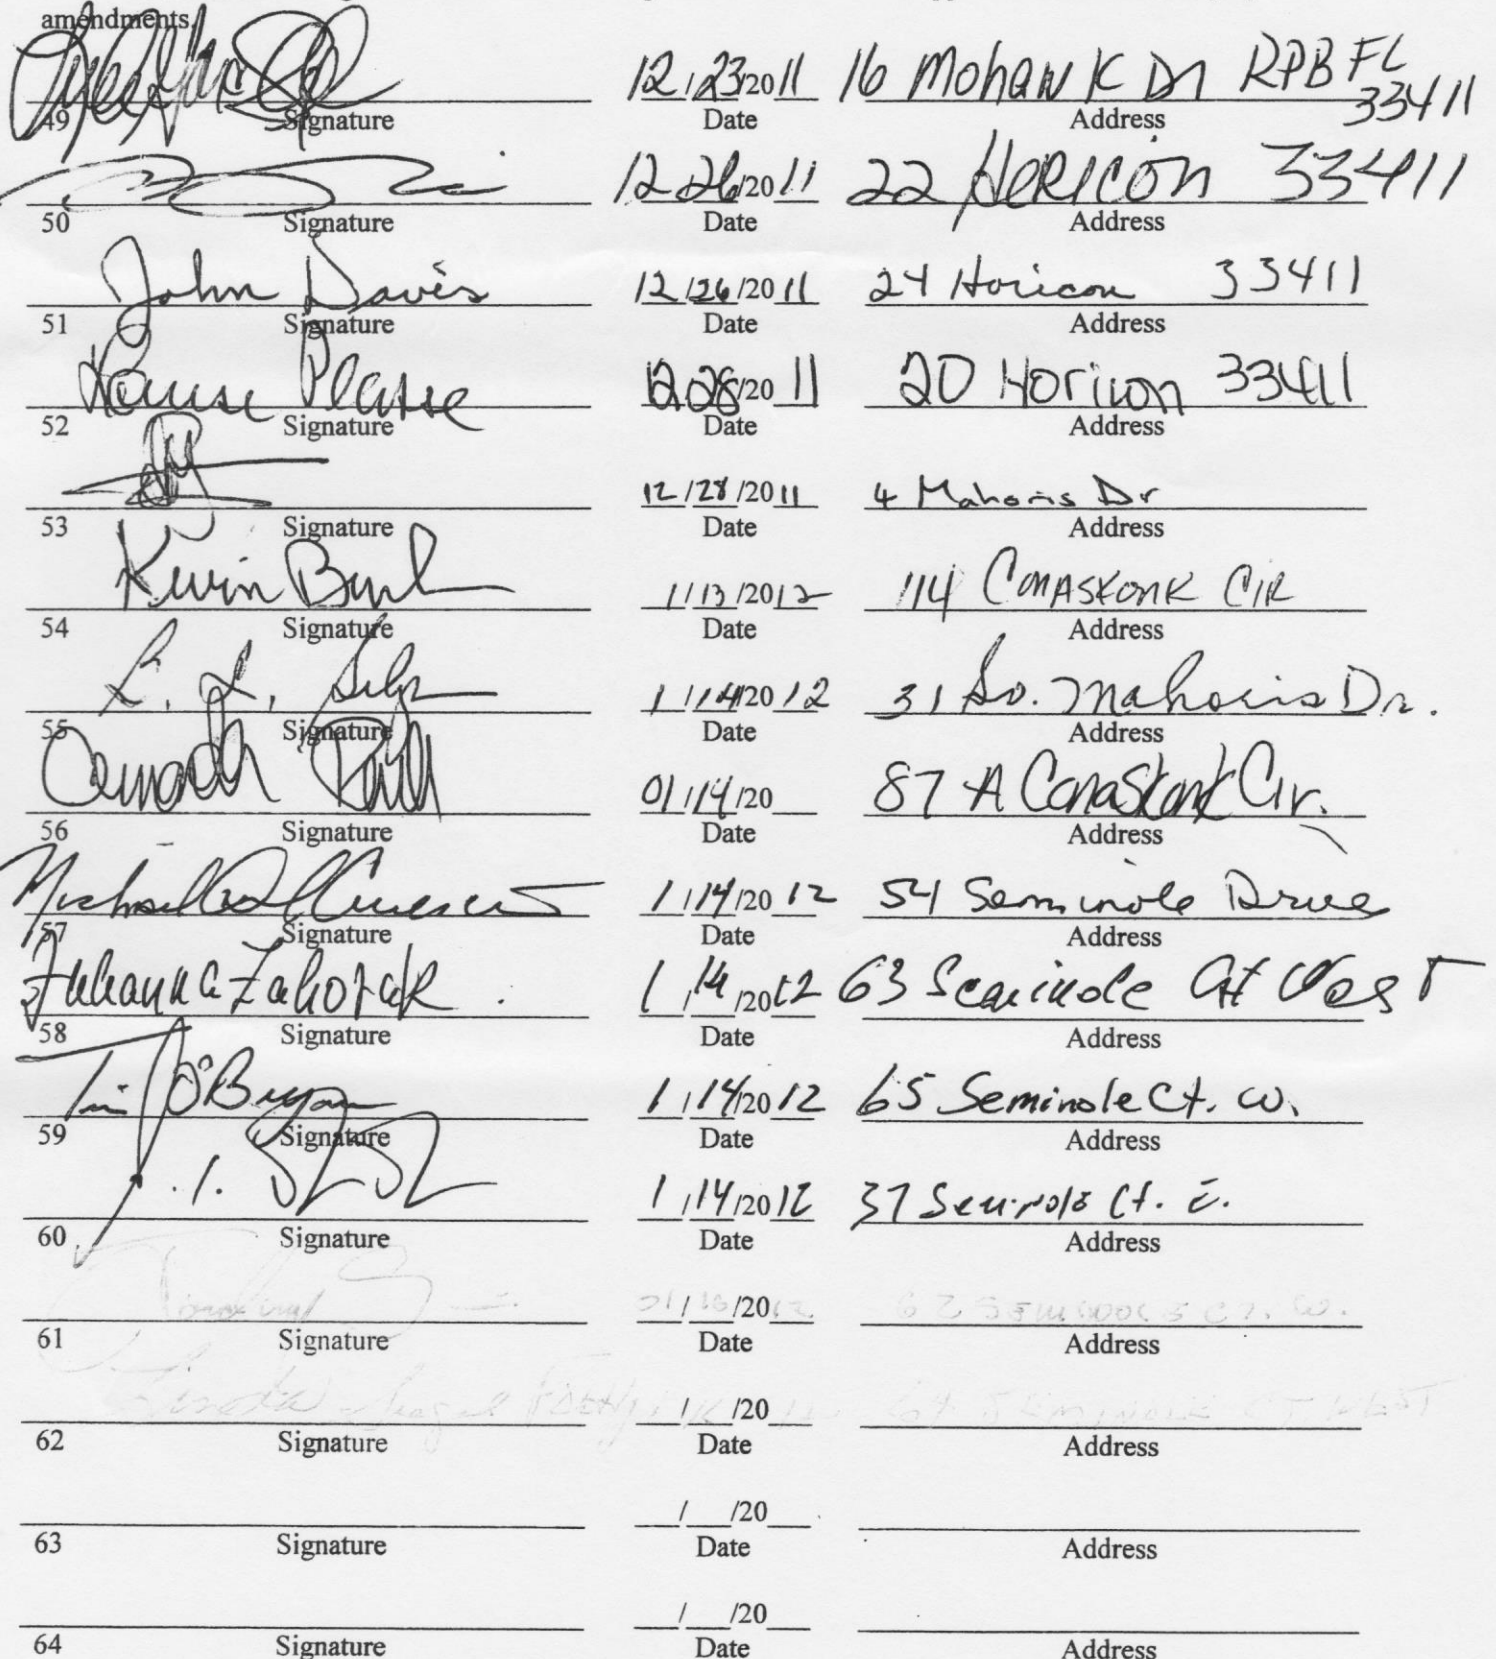 amendments.
12/23/2011 16 Mohawk Dr RPB FL 33411
49 Signature Date Address
12/26/2011 22 Horicon 33411
50 Signature Date Address
John Davis 12/26/2011 24 Horicon 33411
51 Signature Date Address
12/28/2011 20 Horicon 33411
52 Signature Date Address
12/28/2011 4 Mahoris Dr
53 Signature Date Address
Kevin 1/13/2012 114 Conaskonk CIR
54 Signature Date Address
1/14/2012 31 So. Mahoris Dr.
55 Signature Date Address
01/14/20 87 A Conaskonk Cir.
56 Signature Date Address
1/14/2012 54 Seminole Drive
57 Signature Date Address
1/14/2012 63 Seminole Ct West
58 Signature Date Address
Tim O'Bryan 1/14/2012 65 Seminole Ct. W.
59 Signature Date Address
1/14/2012 37 Seminole Ct. E.
60 Signature Date Address
01/16/2012 62 SEMINOLE CT. W.
61 Signature Date Address
Linda / /20 64 SEMINOLE CT WEST
62 Signature Date Address
/ /20
63 Signature Date Address
/ /20
64 Signature Date Address